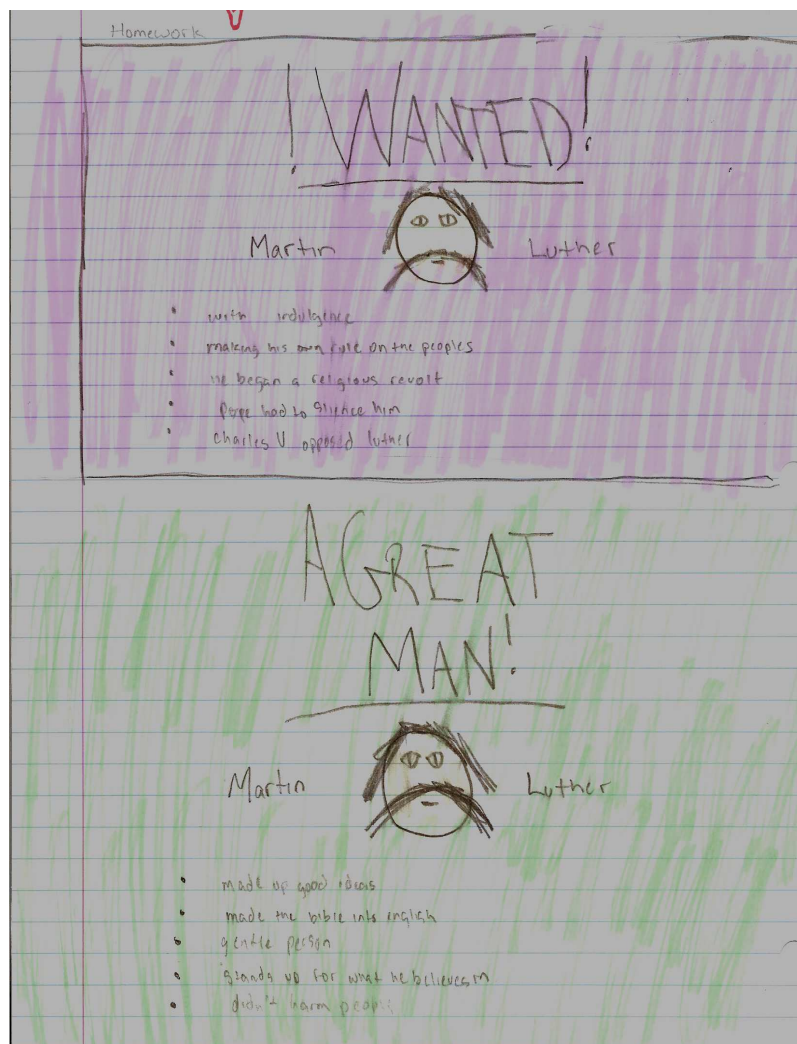 Homework
! WANTED!
Martin Luther
• with indulgence
• making his own rule on the peoples
• he began a religious revolt
• Pope had to silence him
• Charles V opposed luther
A GREAT
MAN!
Martin Luther
• made up good ideas
• made the bible into english
• gentle person
• stands up for what he believes in
• didn't harm people